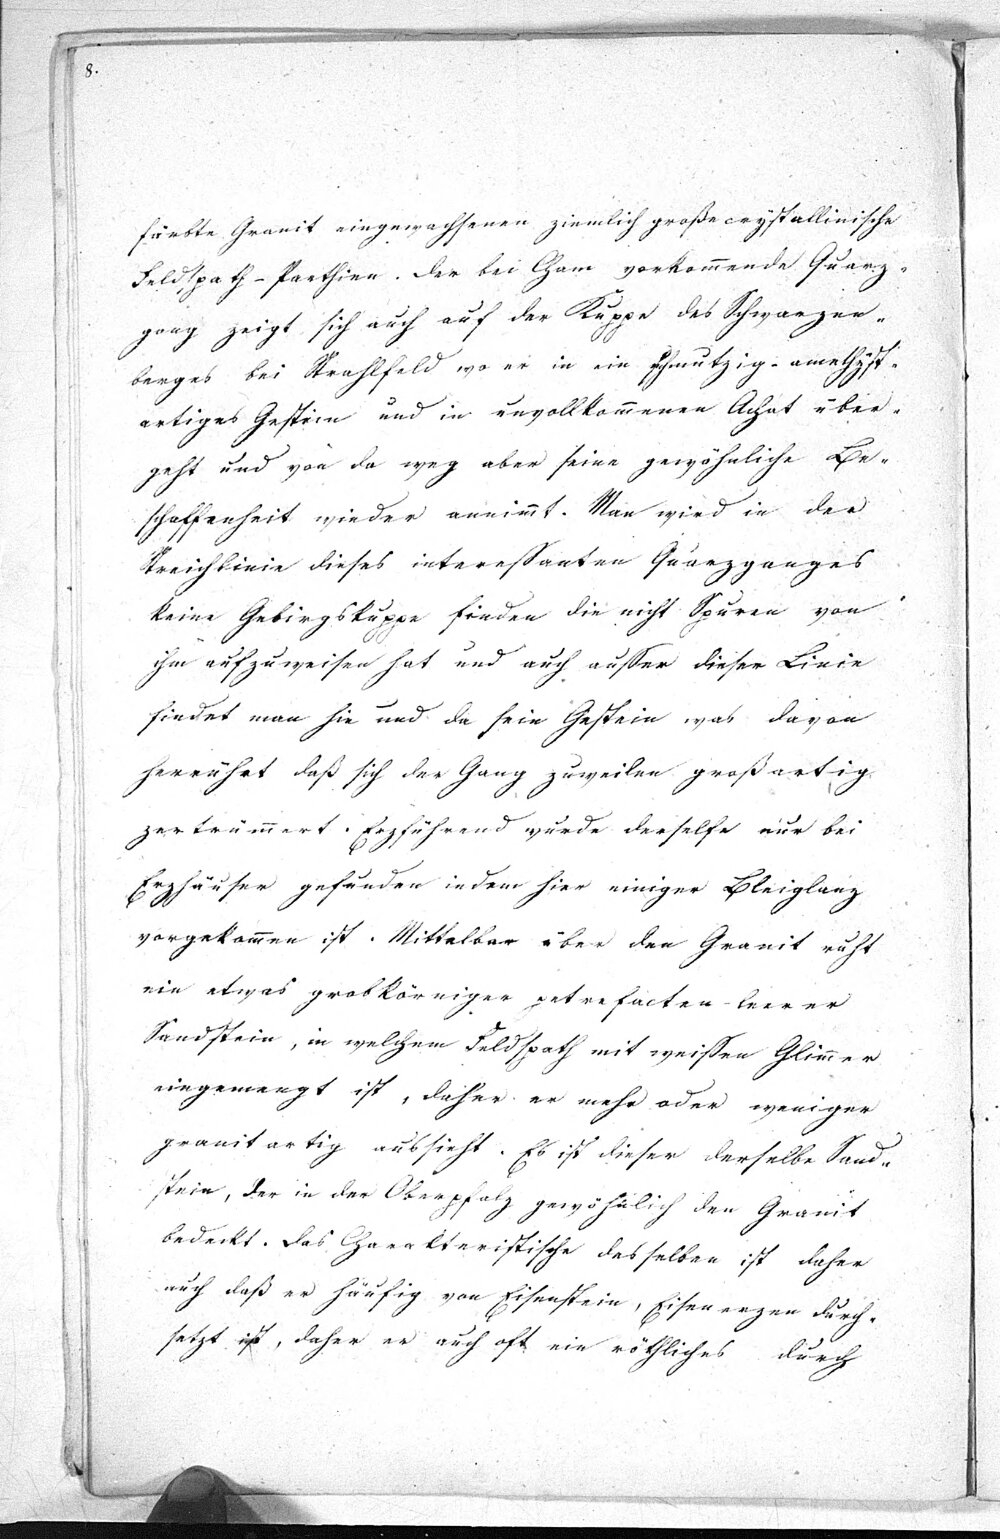 8.
färbte Granit eingewachsenen ziemlich große crystallinische
Feldspath-Parthien. Der bei Cham vorkom̅ende Quarz-
gang zeigt sich auch auf der Kuppe des Schwarzen-
berges bei Strahlfeld wo er in ein schmutzig-amethyst-
artiges Gestein und in unvollkom̅enen Achat über-
geht und von da weg aber seine gewöhnliche Be-
schaffenheit wieder annim̅t. Man wird in der
Streichlinie dieses interessanten Quarzganges
keine Gebirgskuppe finden die nicht Spuren von
ihm aufzuweisen hat und auch ausser dieser Linie
findet man hie und da sein Gestein was davon
herrührt daß sich der Gang zuweilen großartig
zertrüm̅ert. Erzführend wurde derselbe nur bei
Erzhäuser gefunden indem hier einiger Bleiglanz
vorgekom̅en ist. Mittelbar über den Granit ruht
ein etwas grobkörniger petrefacten-leerer
Sandstein, in welchem Feldspath mit weissen Glim̅er
eingemengt ist, daher er mehr oder weniger
granitartig aussieht. Es ist dieser derselbe Sand-
stein, der in der Oberpfalz gewöhnlich den Granit
bedeckt. Das Charakteristische desselben ist daher
auch daß er häufig von Eisenstein, Eisenerzen durch-
setzt ist, daher er auch oft ein röthliches durch